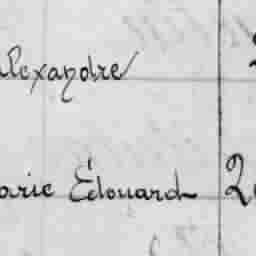 alexandre
arie Édouard 2